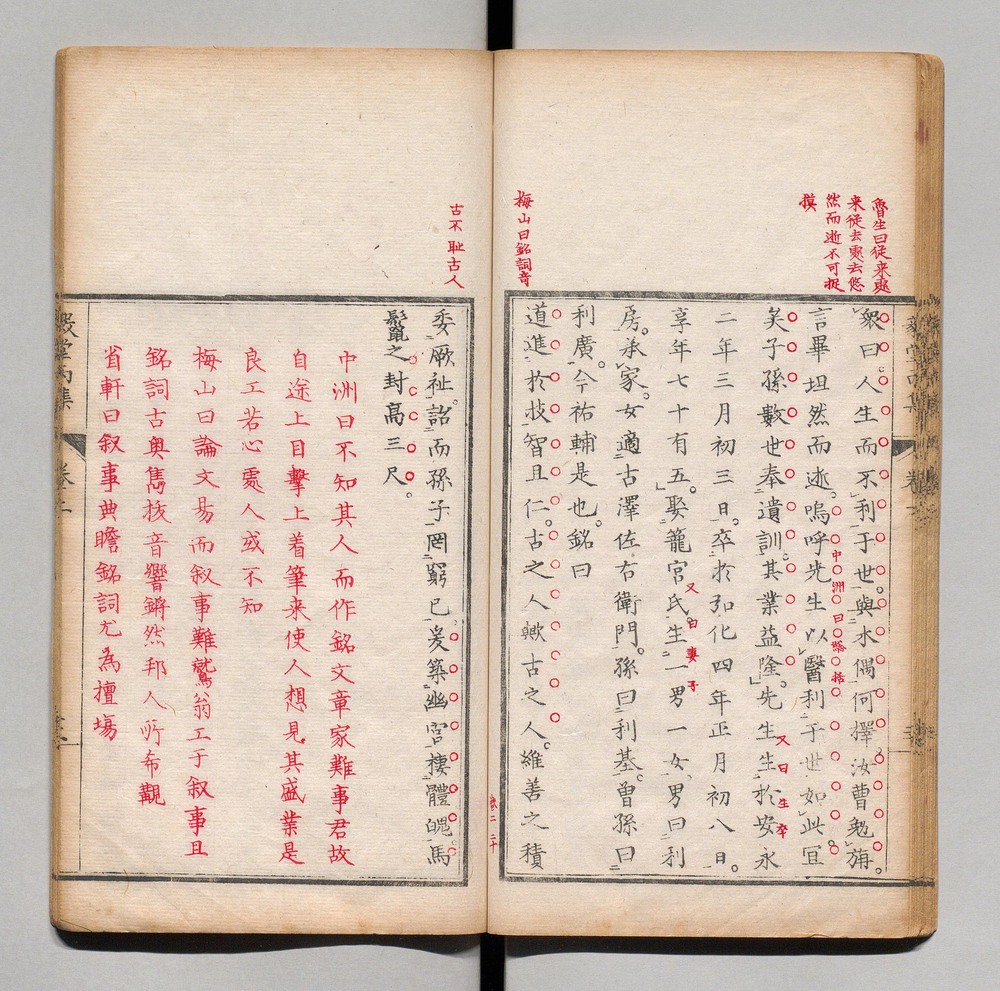 魯生曰従来處
来従去處去悠
然而逝不可捉
摸
衆曰人生而不利于世與水偶何擇汝曹勉旃
言畢坦然而逝嗚呼先生以醫利于世如此宜
矣子孫數世奉遺訓其業益隆先生生於安永
二年三月初三日卒於弘化四年正月初八日
享年七十有五娶籠宮氏生一男一女男曰利
房承家女適古澤佐右衛門孫曰利基曾孫曰
利廣今祐輔是也銘曰
道進於技智且仁古之人歟古之人維善之積
中洲曰總括
又曰生卒
又曰妻子
梅山曰銘詞奇
古不耻古人
委厥祉詒而孫子罔窮已爰築幽宮棲體魄馬
鬣之封高三尺
中洲曰不知其人而作銘文章家難事君故
自途上目擊上着筆来使人想見其盛業是
良工若心處人或不知
梅山曰論文易而叙事難鷲翁工于叙事且
銘詞古奥雋拔音響鏘然邦人所希觀
省軒曰叙事典瞻銘詞尤為擅塲
卷二